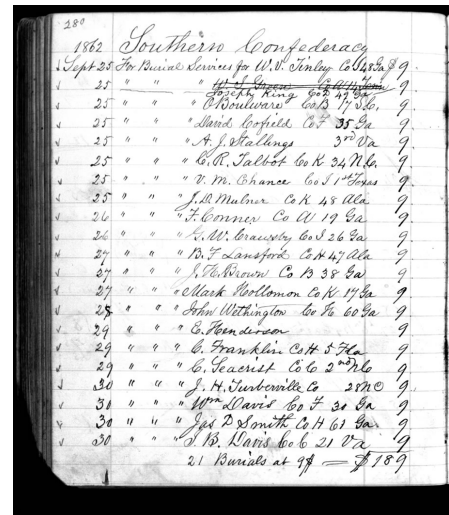 280
1862 Southern Confederacy
Sept 25 For Burial Services for W. V. Tinley Co I 48 Ga $ 9.
25 " " " W. S. Green Co A 14 Tenn
Joseph King Co E 49 Ga 9.
25 " " " O Boulware Co B 17 S.C. 9.
25 " " " David Cofield Co F 35 Ga 9.
25 " " " A. J. Stallings 3rd Va 9.
25 " " " C. R. Talbot Co K 34 N.C. 9.
25 " " " V. M. Chance Co I 1st Texas 9.
25 " " " J. D. Mulner Co K 48 Ala 9.
26 " " " F. Conner Co A 19 Ga 9.
26 " " " G. W. Co I 26 Ga 9.
27 " " " B. F Lansford Co H 47 Ala 9.
27 " " " J. H. Brown Co B 38 Ga 9.
27 " " " Mark Hollomon Co K 17 Ga 9.
28 " " " John Wethington Co H 60 Ga 9.
29 " " " E. Henderson 9.
29 " " " C. Franklin Co H 5 Fla 9.
29 " " " C. Seacrist Co C 2nd N.C 9.
30 " " " J. H. Turberville Co 28 N C 9.
30 " " " Wm Davis Co F 30 Ga 9.
30 " " " Jas D Smith Co H 61 Ga. 9.
30 " " " J B. Davis Co C 21 Va 9
21 Burials at 9$ — $189